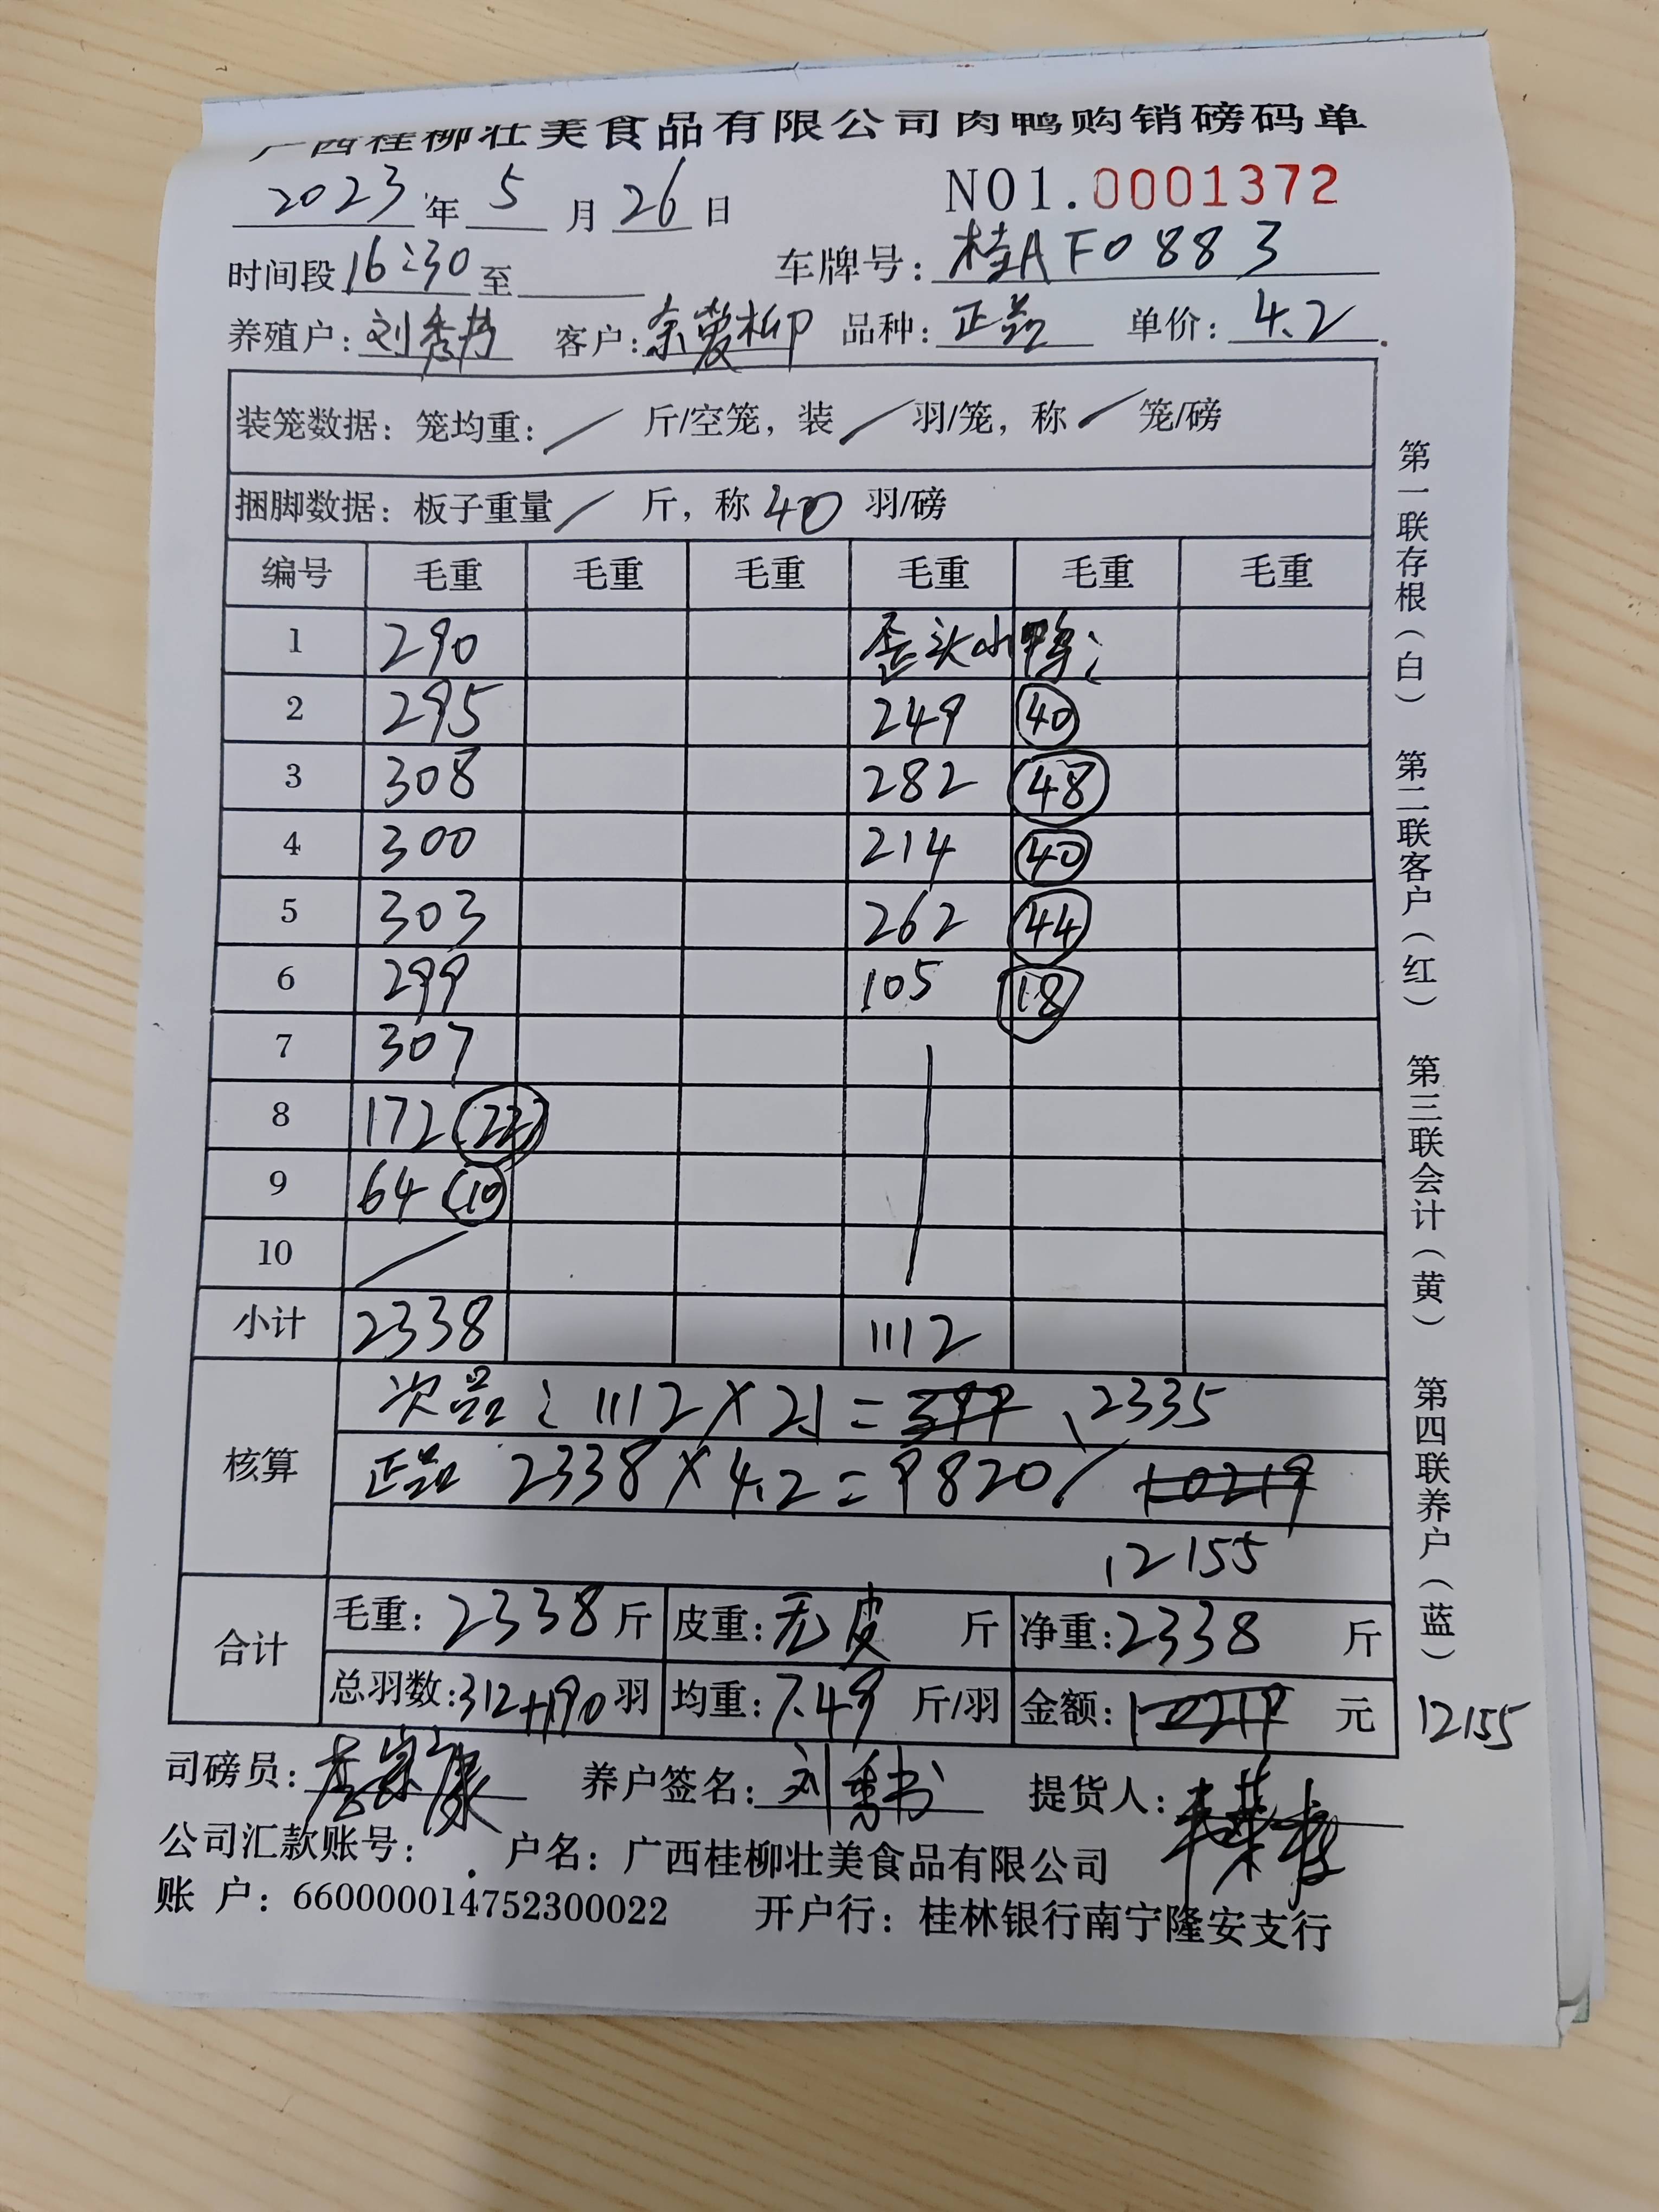 广西桂柳壮美食品有限公司肉鸭购销磅码单
2023年 5 月 26 日 NO1.0001372
时间段16:30至 车牌号：桂AF0883
养殖户：刘秀书 客户：余爱柳 品种：正品 单价：4.2
装笼数据：笼均重：/ 斤/空笼，装/ 羽/笼，称/ 笼/磅
捆脚数据：板子重量/ 斤，称40 羽/磅
编号 毛重 毛重 毛重 毛重 毛重 毛重
1 290 歪头小鸭：
2 295 249 40
3 308 282 48
4 300 214 40
5 303 262 44
6 299 105 18
7 307
8 172 22
9 64 10
10 /
小计 2338 1112
核算
次品：1112×2.1= 2335
正品 2338×4.2=9820/ 10219
12155
合计
毛重：2338斤 皮重：无皮 斤 净重：2338 斤
总羽数：312+190羽 均重：7.49 斤/羽 金额：10219 元 12155
司磅员： 养户签名：刘秀书 提货人：
公司汇款账号： 户名：广西桂柳壮美食品有限公司
账 户：660000014752300022 开户行：桂林银行南宁隆安支行
第一联存根（白） 第二联客户（红） 第三联会计（黄） 第四联养户（蓝）